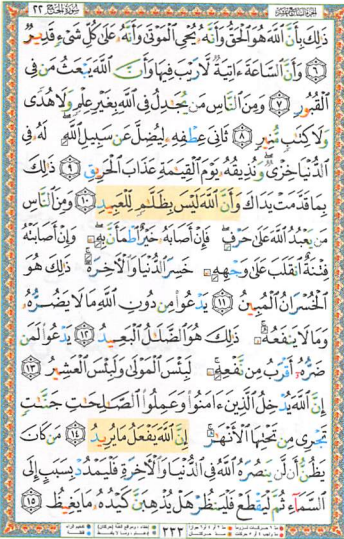 سُورَةُ الحَجِّ ٢٢ الجُزءُ السَّابِعُ عَشَرَ
ذَٰلِكَ بِأَنَّ ٱللَّهَ هُوَ ٱلْحَقُّ وَأَنَّهُۥ يُحْىِ ٱلْمَوْتَىٰ وَأَنَّهُۥ عَلَىٰ كُلِّ شَىْءٍ قَدِيرٌ
٦ وَأَنَّ ٱلسَّاعَةَ ءَاتِيَةٌ لَّا رَيْبَ فِيهَا وَأَنَّ ٱللَّهَ يَبْعَثُ مَن فِى
ٱلْقُبُورِ ٧ وَمِنَ ٱلنَّاسِ مَن يُجَٰدِلُ فِى ٱللَّهِ بِغَيْرِ عِلْمٍ وَلَا هُدًى
وَلَا كِتَٰبٍ مُّنِيرٍ ٨ ثَانِىَ عِطْفِهِۦ لِيُضِلَّ عَن سَبِيلِ ٱللَّهِ لَهُۥ فِى
ٱلدُّنْيَا خِزْىٌ وَنُذِيقُهُۥ يَوْمَ ٱلْقِيَٰمَةِ عَذَابَ ٱلْحَرِيقِ ٩ ذَٰلِكَ
بِمَا قَدَّمَتْ يَدَاكَ وَأَنَّ ٱللَّهَ لَيْسَ بِظَلَّٰمٍ لِّلْعَبِيدِ ١٠ وَمِنَ ٱلنَّاسِ
مَن يَعْبُدُ ٱللَّهَ عَلَىٰ حَرْفٍ فَإِنْ أَصَابَهُۥ خَيْرٌ ٱطْمَأَنَّ بِهِۦ وَإِنْ أَصَابَتْهُ
فِتْنَةٌ ٱنقَلَبَ عَلَىٰ وَجْهِهِۦ خَسِرَ ٱلدُّنْيَا وَٱلْءَاخِرَةَ ذَٰلِكَ هُوَ
ٱلْخُسْرَانُ ٱلْمُبِينُ ١١ يَدْعُوا۟ مِن دُونِ ٱللَّهِ مَا لَا يَضُرُّهُۥ
وَمَا لَا يَنفَعُهُۥ ذَٰلِكَ هُوَ ٱلضَّلَٰلُ ٱلْبَعِيدُ ١٢ يَدْعُوا۟ لَمَن
ضَرُّهُۥٓ أَقْرَبُ مِن نَّفْعِهِۦ لَبِئْسَ ٱلْمَوْلَىٰ وَلَبِئْسَ ٱلْعَشِيرُ ١٣
إِنَّ ٱللَّهَ يُدْخِلُ ٱلَّذِينَ ءَامَنُوا۟ وَعَمِلُوا۟ ٱلصَّٰلِحَٰتِ جَنَّٰتٍ
تَجْرِى مِن تَحْتِهَا ٱلْأَنْهَٰرُ إِنَّ ٱللَّهَ يَفْعَلُ مَا يُرِيدُ ١٤ مَن كَانَ
يَظُنُّ أَن لَّن يَنصُرَهُ ٱللَّهُ فِى ٱلدُّنْيَا وَٱلْءَاخِرَةِ فَلْيَمْدُدْ بِسَبَبٍ إِلَى
ٱلسَّمَآءِ ثُمَّ لْيَقْطَعْ فَلْيَنظُرْ هَلْ يُذْهِبَنَّ كَيْدُهُۥ مَا يَغِيظُ ١٥
٣٣٣